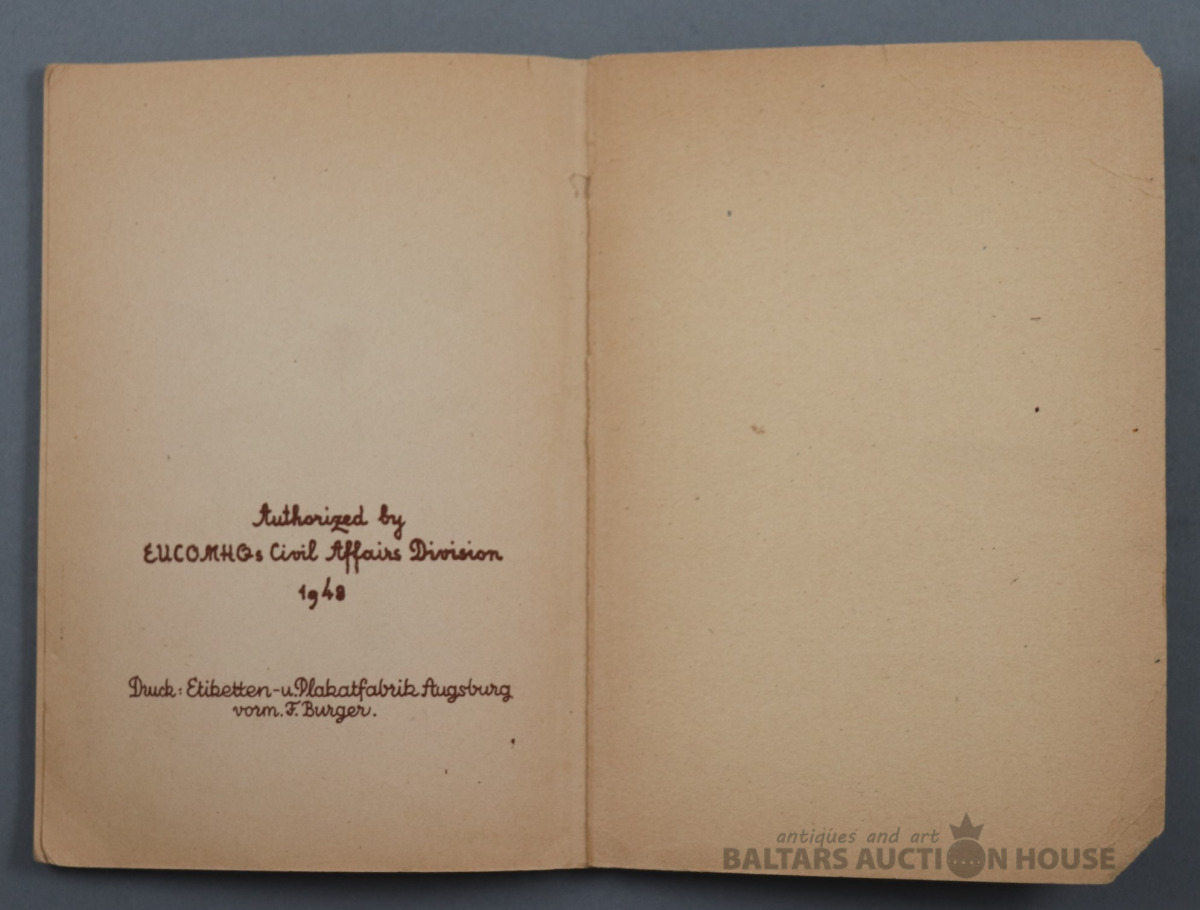 Authorized by
EUCOMHQs Civil Affairs Division
1948
Druck: Etiketten-u. Plakatfabrik Augsburg
vorm. F. Burger.
antiques and art
BALTARS AUCTION HOUSE